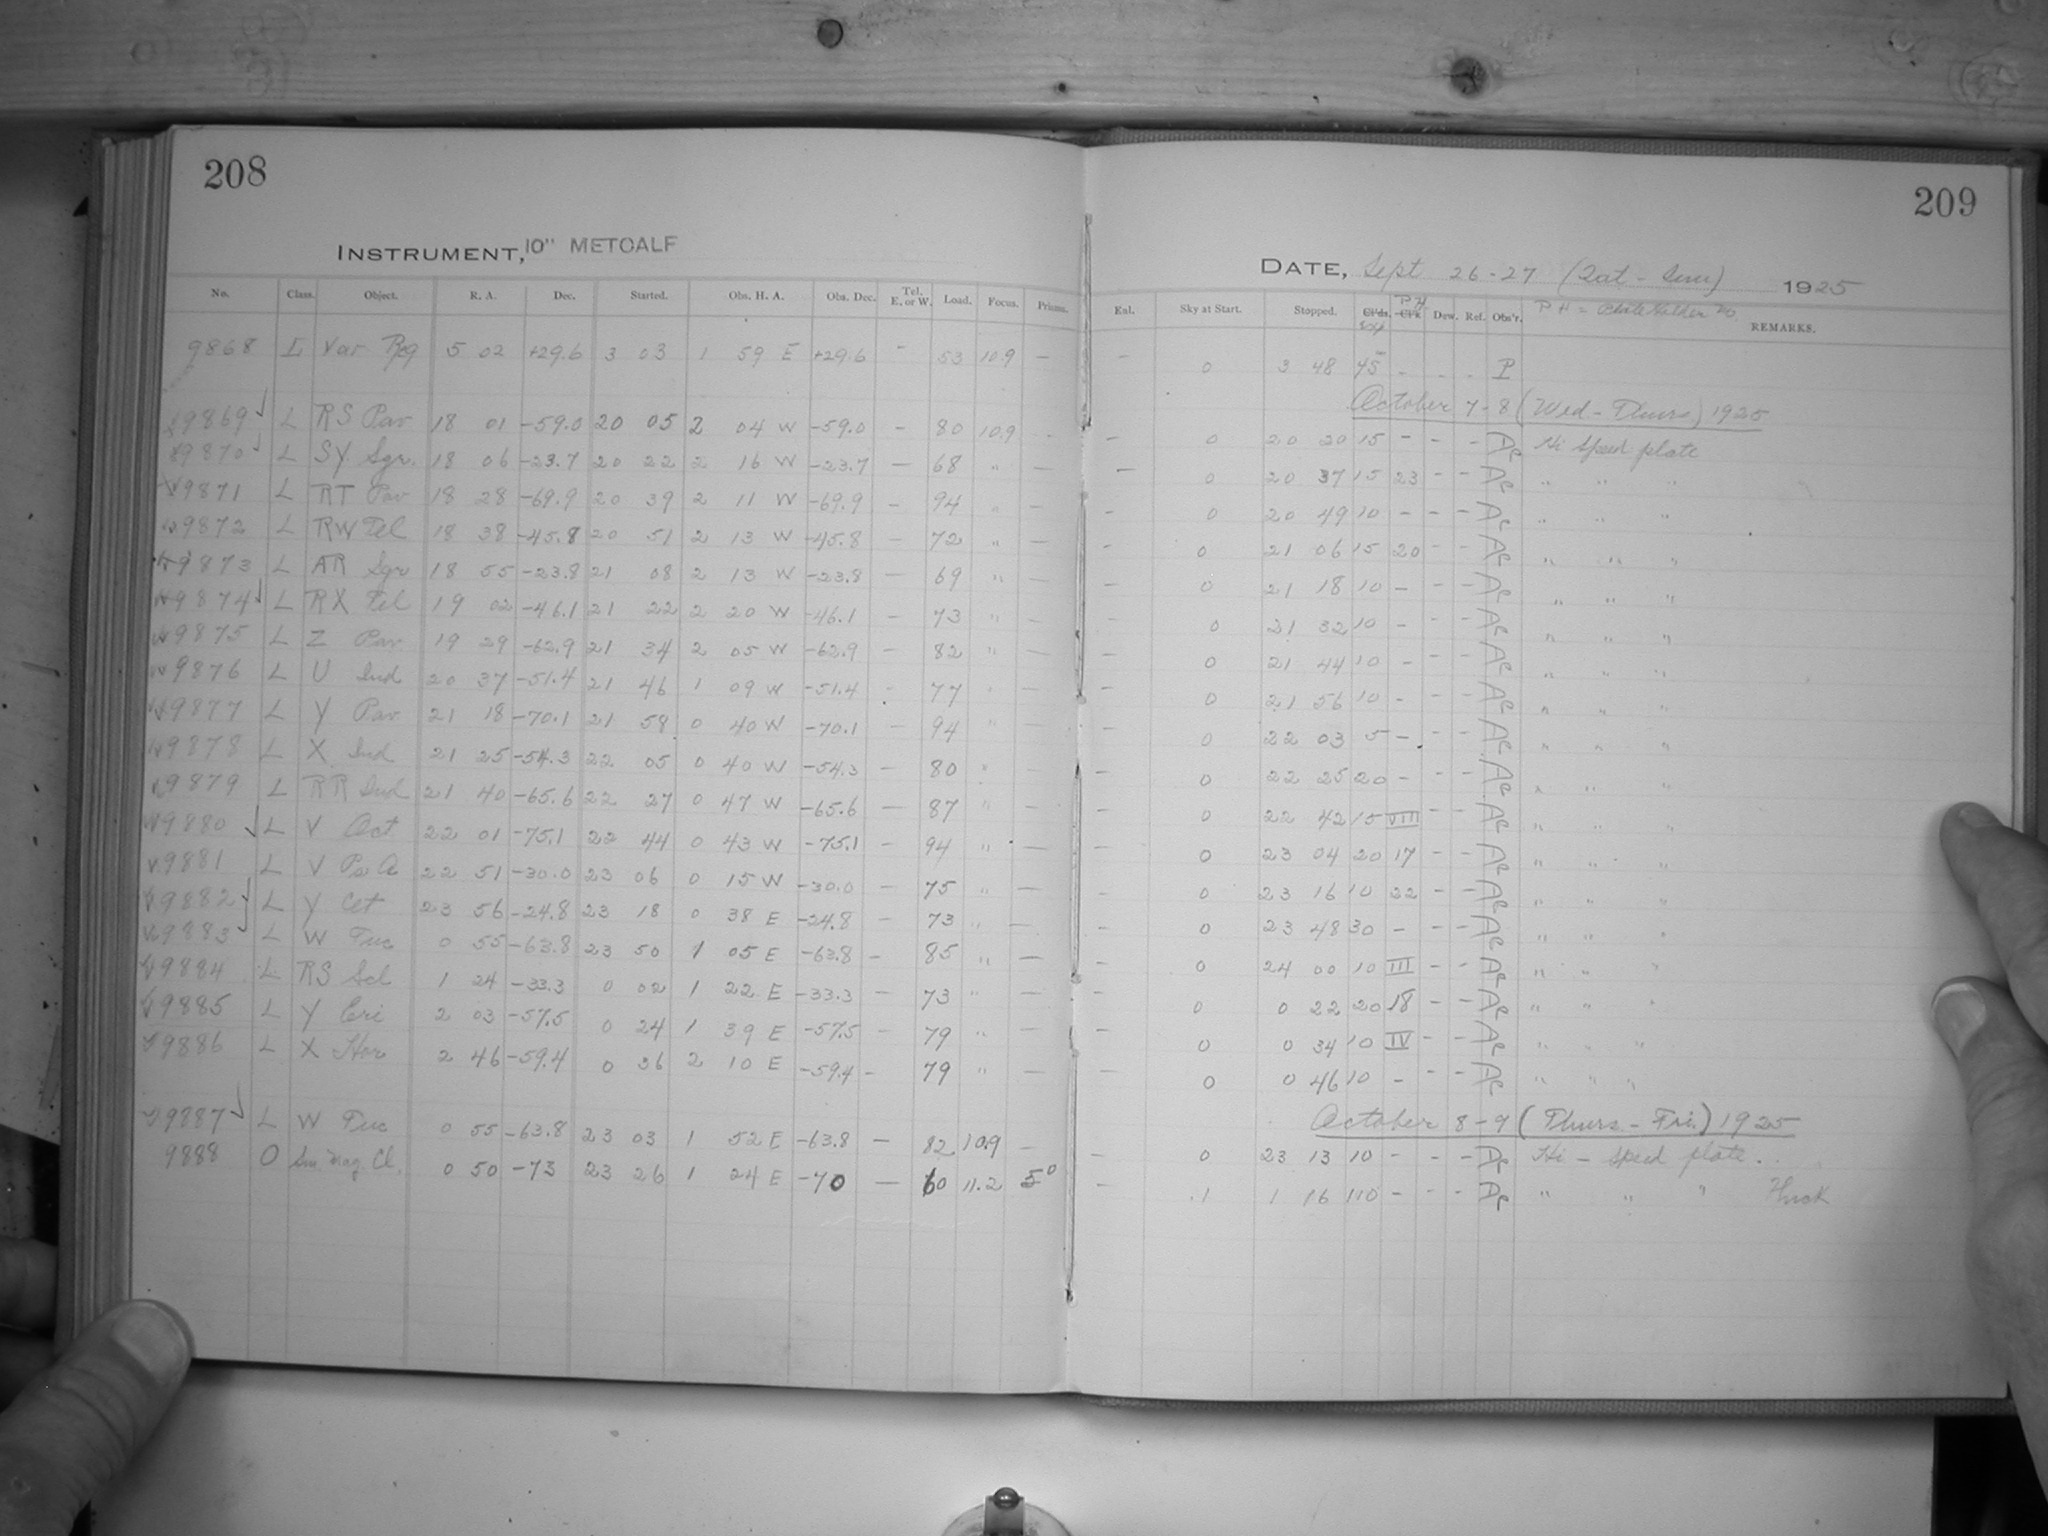 208
INSTRUMENT, 10" METCALF
No. Class. Object. R. A. Dec. Started. Obs. H. A. Obs. Dec. Tel. E. or W. Load. Focus. Prisms.
9868 I Var 5 02 +29.6 3 03 1 59 E +29.6 - 53 10.9 -
9869 L RS Pav 18 01 -59.0 20 05 2 04 W -59.0 - 80 10.9 -
9870 L SY Sgr. 18 06 -23.7 20 22 2 16 W -23.7 - 68 " -
9871 L RT Pav 18 28 -69.9 20 39 2 11 W -69.9 - 94 " -
9872 L RW Tel 18 38 -45.8 20 51 2 13 W -45.8 - 72 " -
9873 L AR Sgr 18 55 -23.8 21 08 2 13 W -23.8 - 69 " -
9874 L RX Tel 19 02 -46.1 21 22 2 20 W -46.1 - 73 " -
9875 L Z Pav 19 29 -62.9 21 34 2 05 W -62.9 - 82 " -
9876 L U Ind 20 37 -51.4 21 46 1 09 W -51.4 - 77 " -
9877 L Y Pav 21 18 -70.1 21 58 0 40 W -70.1 - 94 " -
9878 L X Ind 21 25 -54.3 22 05 0 40 W -54.3 - 80 " -
9879 L RR Ind 21 40 -65.6 22 27 0 47 W -65.6 - 87 " -
9880 L V Oct 22 01 -75.1 22 44 0 43 W -75.1 - 94 " -
9881 L V Ps A 22 51 -30.0 23 06 0 15 W -30.0 - 75 " -
9882 L Y Cet 23 56 -24.8 23 18 0 38 E -24.8 - 73 " -
9883 L W Tuc 0 55 -63.8 23 50 1 05 E -63.8 - 85 " -
9884 L RS Scl 1 24 -33.3 0 02 1 22 E -33.3 - 73 " -
9885 L Y Eri 2 03 -57.5 0 24 1 39 E -57.5 - 79 " -
9886 L X Hor 2 46 -59.4 0 36 2 10 E -59.4 - 79 " -
9887 L W Tuc 0 55 -63.8 23 03 1 52 E -63.8 - 82 10.9 -
9888 O Sm. Mag. Cl. 0 50 -73 23 26 1 24 E -70 - 60 11.2 5°
209
DATE, Sept 26-27 (Sat - Sun) 1925
Enl. Sky at Start. Stopped. Cl'ds. Cl'k PH Dew. Ref. Obs'r. PH = Plate Holder No. REMARKS.
- 0 3 48 45 - - - P
October 7-8 (Wed - Thurs) 1925
- 0 20 20 15 - - - Ac Hi Speed plate
- 0 20 37 15 23 - - Ac " " "
- 0 20 49 10 - - - Ac " " "
- 0 21 06 15 20 - - Ac " " "
- 0 21 18 10 - - - Ac " " "
- 0 21 32 10 - - - Ac " " "
- 0 21 44 10 - - - Ac " " "
- 0 21 56 10 - - - Ac " " "
- 0 22 03 5 - - - Ac " " "
- 0 22 25 20 - - - Ac " " "
- 0 22 42 15 VIII - - Ac " " "
- 0 23 04 20 17 - - Ac " " "
- 0 23 16 10 22 - - Ac " " "
- 0 23 48 30 - - - Ac " " "
- 0 24 00 10 III - - Ac " " "
- 0 0 22 20 18 - - Ac " " "
- 0 0 34 10 IV - - Ac " " "
- 0 0 46 10 - - - Ac " " "
October 8-9 (Thurs - Fri.) 1925
- 0 23 13 10 - - - Ac Hi - speed plate.
- .1 1 16 110 - - - Ac " " " Thick